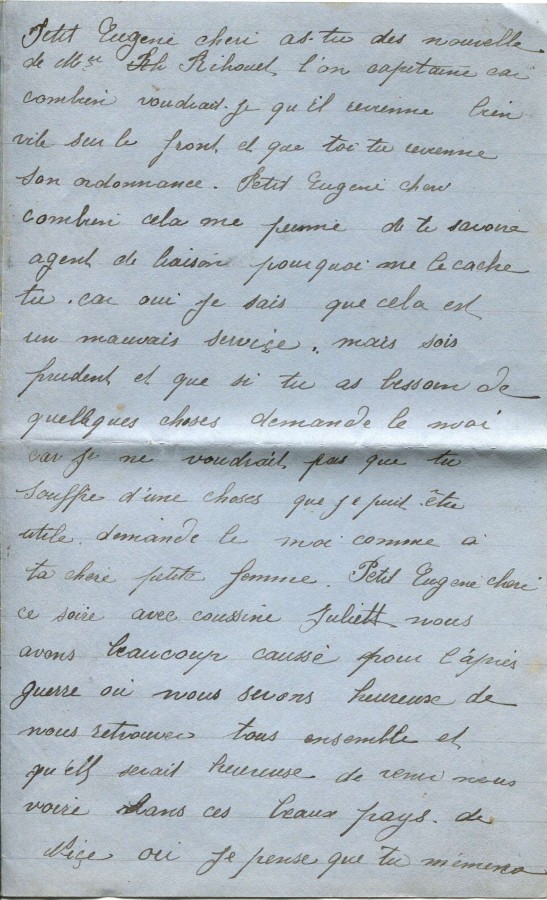 Petit Eugene cheri as-tu des nouvelle
de Mr Rihouet l'on capitaine car
combien voudrait-je qu'il revienne bien
vite sur le front et que toi tu revienne
son ordonnance. Petit Eugene cheri
combien cela me penne de te savoire
agent de liaison pourquoi me le cache
tu. car oui je sais que cela est
un mauvais serviçe. mais sois
prudent et que si tu as bessoin de
quelleques choses demande le moi
car je ne voudrait pas que tu
souffre d'une choses que je puit être
utile. demande le moi comme a
ta cheri petite femme. Petit Eugene cheri
ce soire avec coussine Juliett nous
avons beaucoup caussé pour l'après
guerre où nous serons heureuse de
nous retrouver tous ensemble et
qu'ell serait heureuse de venir nous
voire dans ces beaux pays. de
Niçe où je pense que tu m'emmen